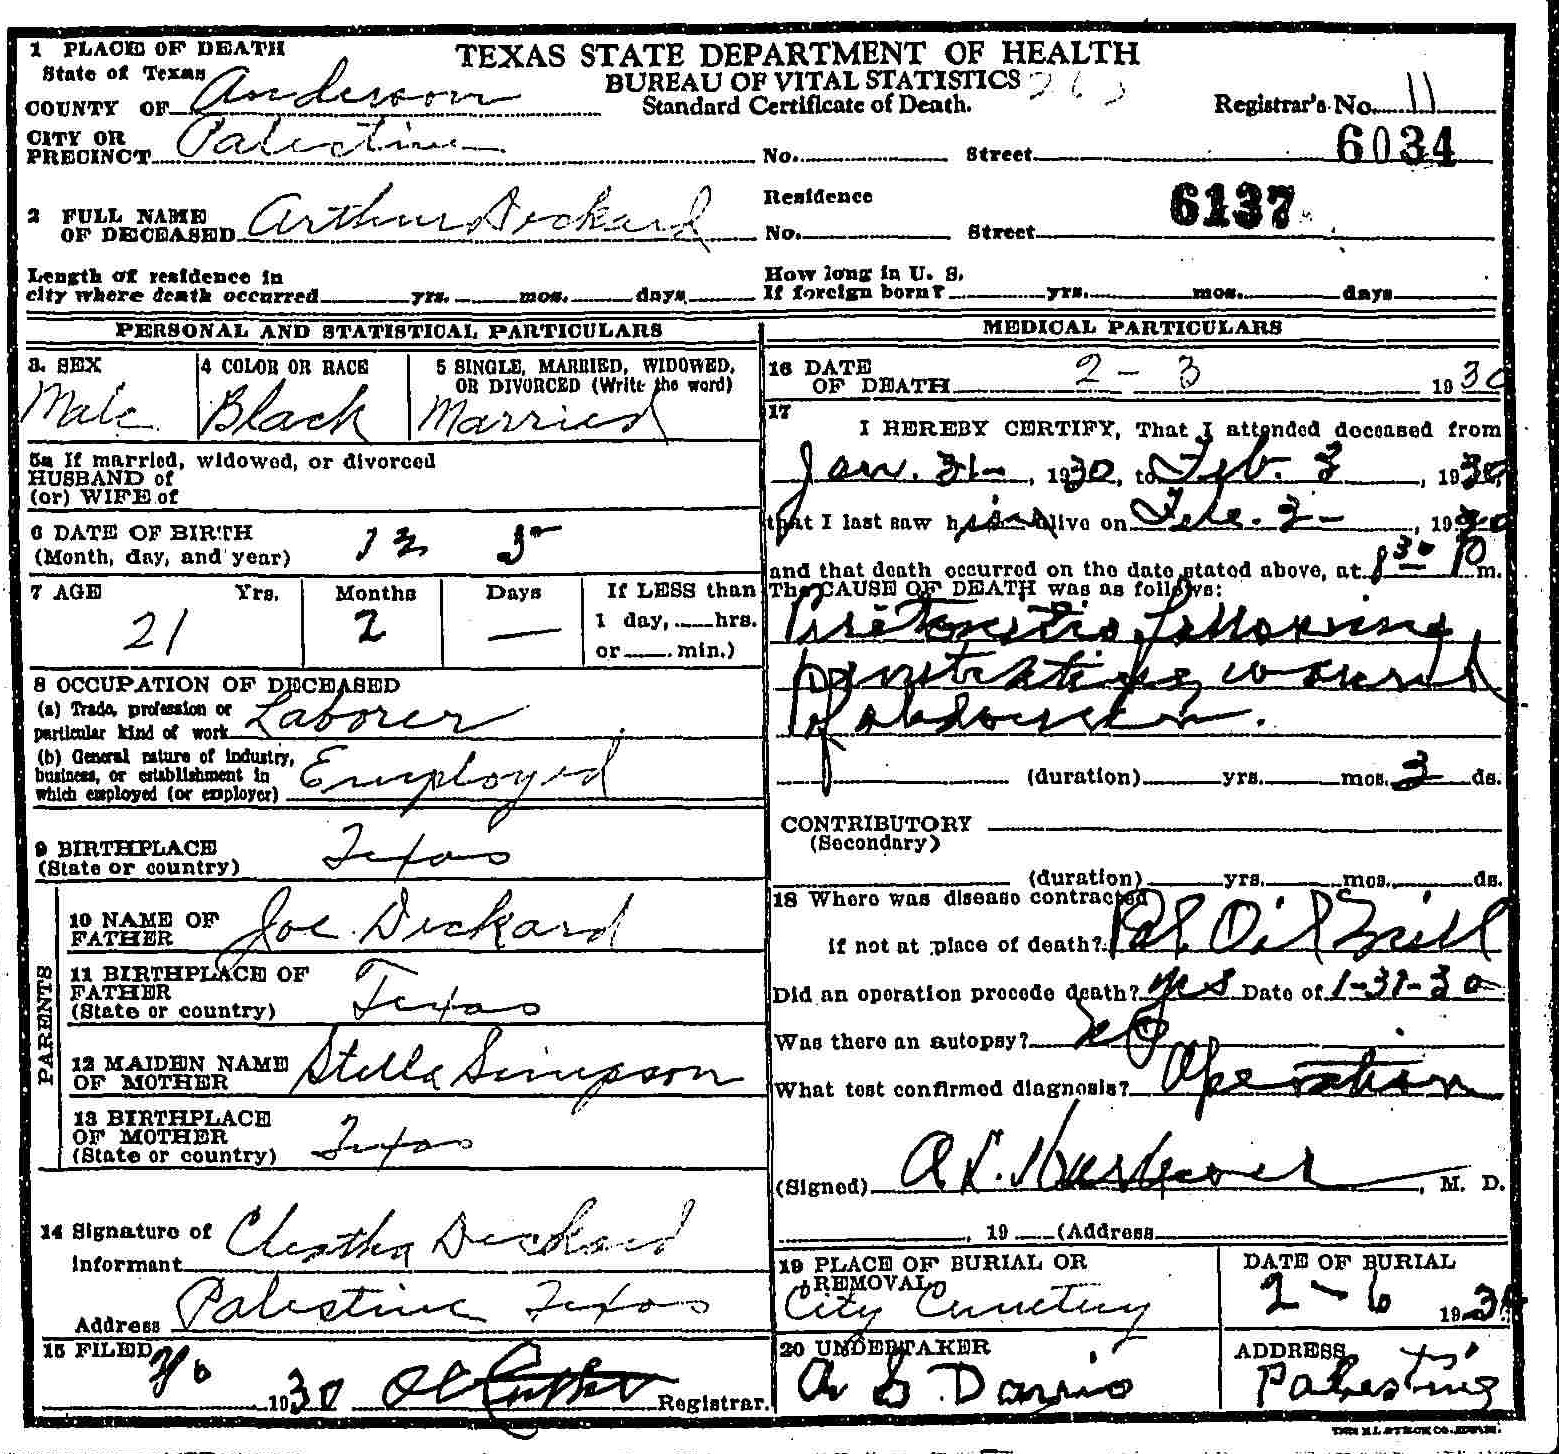 TEXAS STATE DEPARTMENT OF HEALTH
BUREAU OF VITAL STATISTICS
Standard Certificate of Death.
Registrar's No. 11
6034
6137
1 PLACE OF DEATH
State of Texas
COUNTY OF Anderson
CITY OR
PRECINCT Palestine
No. Street
2 FULL NAME
OF DECEASED Arthur Deckard
Residence
No. Street
Length of residence in
city where death occurred yrs. mos. days
How long in U. S.
If foreign born? yrs. mos. days
PERSONAL AND STATISTICAL PARTICULARS
3. SEX
Male
4 COLOR OR RACE
Black
5 SINGLE, MARRIED, WIDOWED,
OR DIVORCED (Write the word)
Married
5a If married, widowed, or divorced
HUSBAND of
(or) WIFE of
6 DATE OF BIRTH
(Month, day, and year) 12 5
7 AGE Yrs. Months Days
21 2 —
If LESS than
1 day, hrs.
or min.)
8 OCCUPATION OF DECEASED
(a) Trade, profession or
particular kind of work Laborer
(b) General nature of industry,
business, or establishment in
which employed (or employer) Employed
9 BIRTHPLACE
(State or country) Texas
PARENTS
10 NAME OF
FATHER Joe Deckard
11 BIRTHPLACE OF
FATHER
(State or country) Texas
12 MAIDEN NAME
OF MOTHER Stella Simpson
13 BIRTHPLACE
OF MOTHER
(State or country) Texas
14 Signature of
Informant Cleatha Deckard
Address Palestine Texas
15 FILED
1930 Registrar.
MEDICAL PARTICULARS
16 DATE
OF DEATH 2 - 3 1930
17
I HEREBY CERTIFY, That I attended deceased from
Jan. 31- , 1930, to Feb. 3 , 1930,
that I last saw him alive on Feb. 3- , 1930
and that death occurred on the date stated above, at 8 30 P m.
The CAUSE OF DEATH was as follows:
Peritonitis following
penetrating wound
of abdomen.
(duration) yrs. mos. 3 ds.
CONTRIBUTORY
(Secondary)
(duration) yrs. mos. ds.
18 Where was disease contracted
if not at place of death? Pal. Oil Mill
Did an operation precede death? yes Date of 1-31-30
Was there an autopsy? no
What test confirmed diagnosis? Operation
(Signed) , M. D.
, 19 (Address
19 PLACE OF BURIAL OR
REMOVAL
City Cemetery
DATE OF BURIAL
2 - 6 1930
20 UNDERTAKER
ADDRESS
Palestine